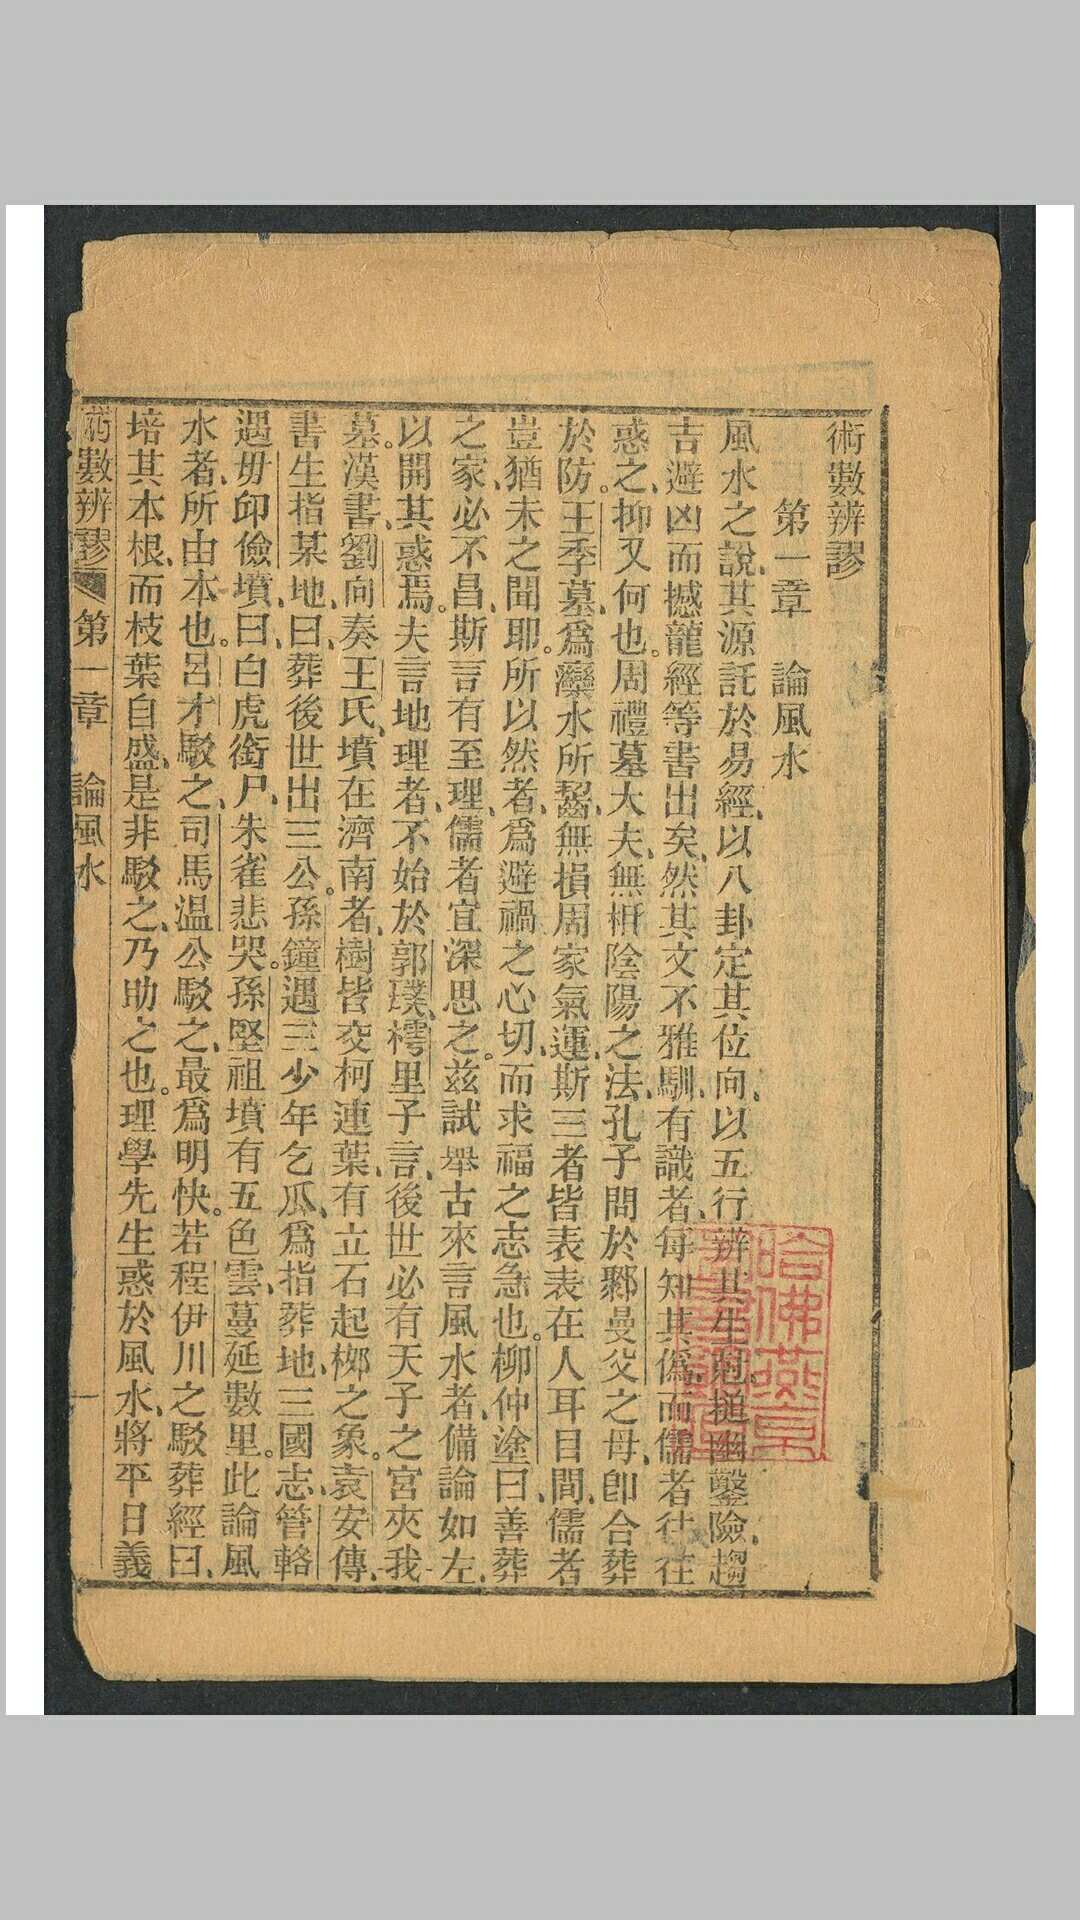 術數辨謬
第一章 論風水
風水之說、其源託於易經、以八卦定其位向、以五行辨其生尅、搥幽鑿險、趨
吉避凶而撼龍經等書出矣、然其文不雅馴、有識者、每知其僞、而儒者往往
惑之、抑又何也。周禮墓大夫、無柤陰陽之法、孔子問於鄹曼父之母、卽合葬
於防。王季墓、爲灤水所齧、無損周家氣運、斯三者皆表表在人耳目間、儒者
豈猶未之聞耶。所以然者、爲避禍之心切、而求福之志急也。柳仲塗曰、善葬
之家、必不昌、斯言有至理、儒者宜深思之。茲試舉古來言風水者、備論如左、
以開其惑焉。夫言地理者、不始於郭璞、樗里子言、後世必有天子之宮夾我
墓。漢書、劉向奏王氏、墳在濟南者、樹皆交柯連葉、有立石起栁之象。袁安傳、
書生指某地、曰、葬後世出三公。孫鐘遇三少年乞瓜、爲指葬地、三國志、管輅
遇毋邱儉墳、曰、白虎銜尸、朱雀悲哭。孫堅祖墳有五色雲、蔓延數里。此論風
水者、所由本也。呂才駁之、司馬温公駁之、最爲明快。若程伊川之駁葬經曰、
培其本根、而枝葉自盛、是非駁之、乃助之也。理學先生惑於風水、將平日義
術數辨謬 第一章 論風水 一
哈佛燕京